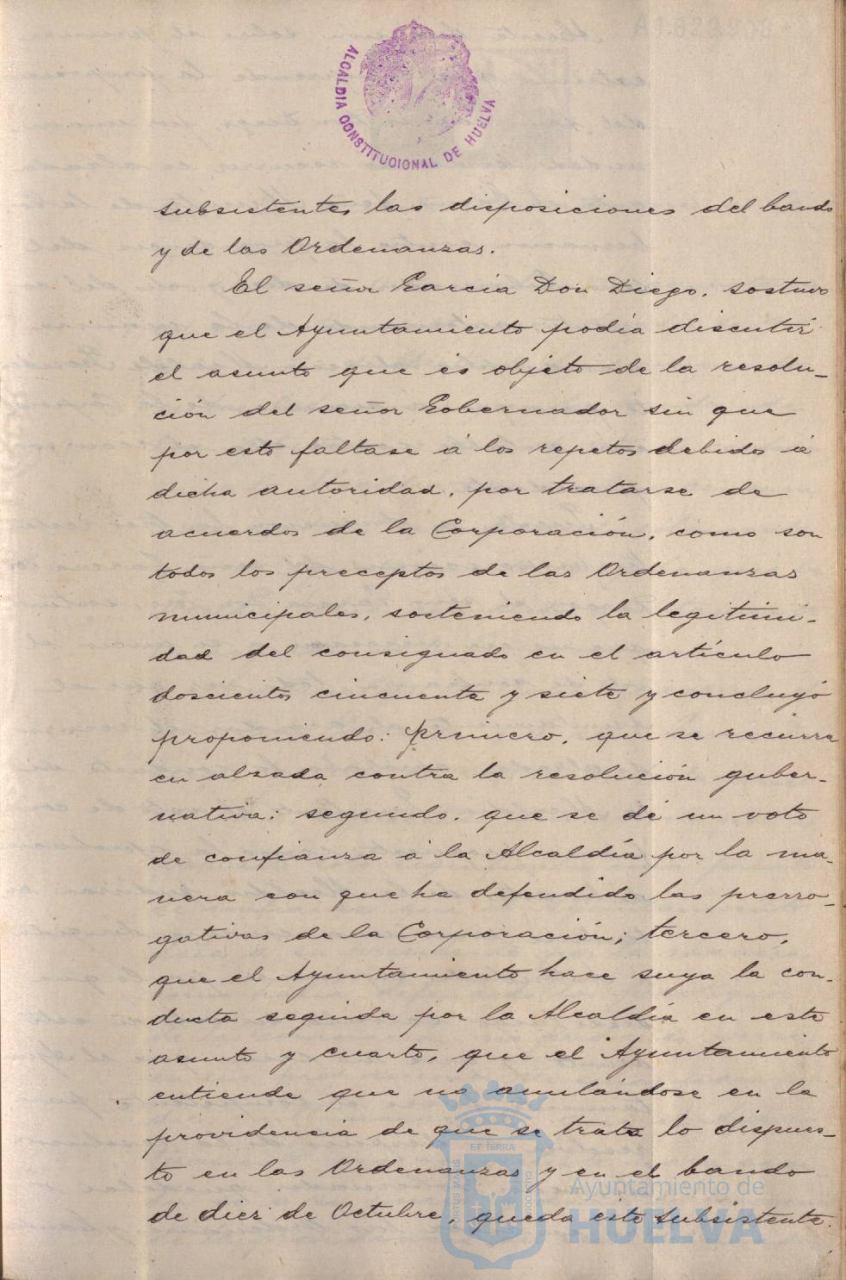 ALCALDIA CONSTITUCIONAL DE HUELVA
subsistentes las disposiciones del bando
y de las Ordenanzas.
El señor Garcia Don Diego, sostuvo
que el Ayuntamiento podía discutir
el asunto que es objeto de la resolu-
ción del señor Gobernador sin que
por esto faltase á los repetos debidos á
dicha autoridad, por tratarse de
acuerdos de la Corporación, como son
todos los preceptos de las Ordenanzas
municipales, sosteniendo la legitimi-
dad del consignado en el artículo
doscientos cincuenta y siete y concluyó
proponiendo: primero, que se recurra
en alzada contra la resolución guber-
nativa; segundo, que se dé un voto
de confianza á la Alcaldía por la ma-
nera con que ha defendido las prerro-
gativas de la Corporación; tercero,
que el Ayuntamiento hace suya la con-
ducta seguida por la Alcaldía en este
asunto y cuarto, que el Ayuntamiento
entiende que no anulándose en la
providencia de que se trata lo dispues-
to en las Ordenanzas y en el bando
de diez de Octubre, queda este subsistente.
Ayuntamiento de
HUELVA